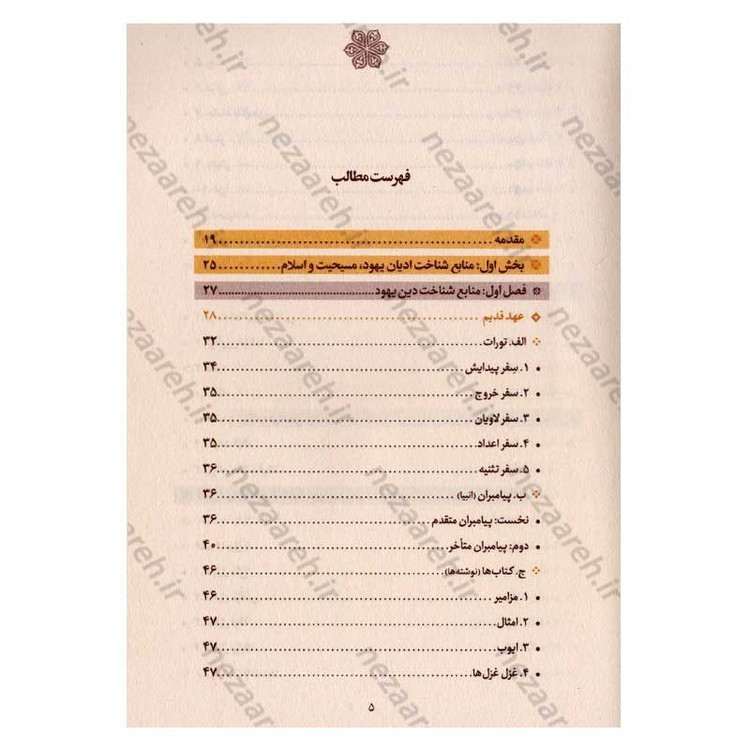 فهرست مطالب
مقدمه ........................................ ۱۹
بخش اول: منابع شناخت ادیان یهود، مسیحیت و اسلام ............ ۲۵
فصل اول: منابع شناخت دین یهود ........................................ ۲۷
عهد قدیم ........................................ ۲۸
الف. تورات ........................................ ۳۲
۱. سِفر پیدایش ........................................ ۳۴
۲. سفر خروج ........................................ ۳۵
۳. سفر لاویان ........................................ ۳۵
۴. سفر اعداد ........................................ ۳۵
۵. سفر تثنیه ........................................ ۳۶
ب. پیامبران (انبیا) ........................................ ۳۶
نخست: پیامبران متقدم ........................................ ۳۶
دوم: پیامبران متأخر ........................................ ۴۰
ج. کتاب‌ها (نوشته‌ها) ........................................ ۴۶
۱. مزامیر ........................................ ۴۶
۲. امثال ........................................ ۴۷
۳. ایوب ........................................ ۴۷
۴. غزل غزل‌ها ........................................ ۴۷
۵
nezaareh.ir